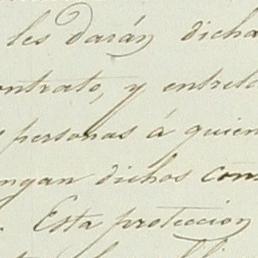 les darán dicha
ontrato, y entreta
personas á quien
ngan dichos con
. Esta proteccion